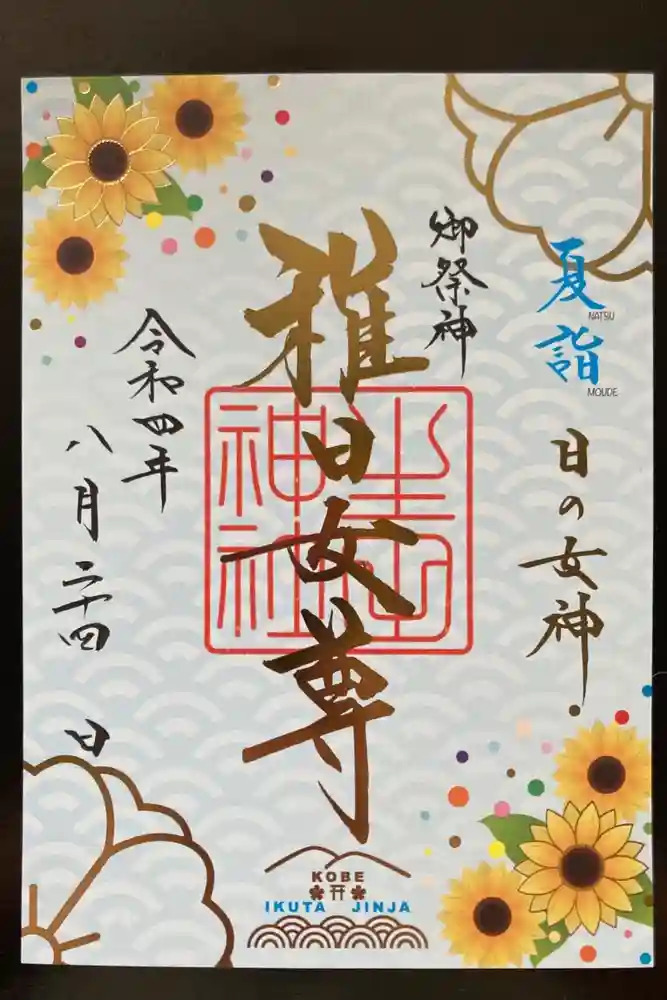 夏詣
NATSU
MOUDE
日の女神
御祭神
稚日女尊
生田
神社
令和四年
八月二十四日
KOBE
IKUTA JINJA